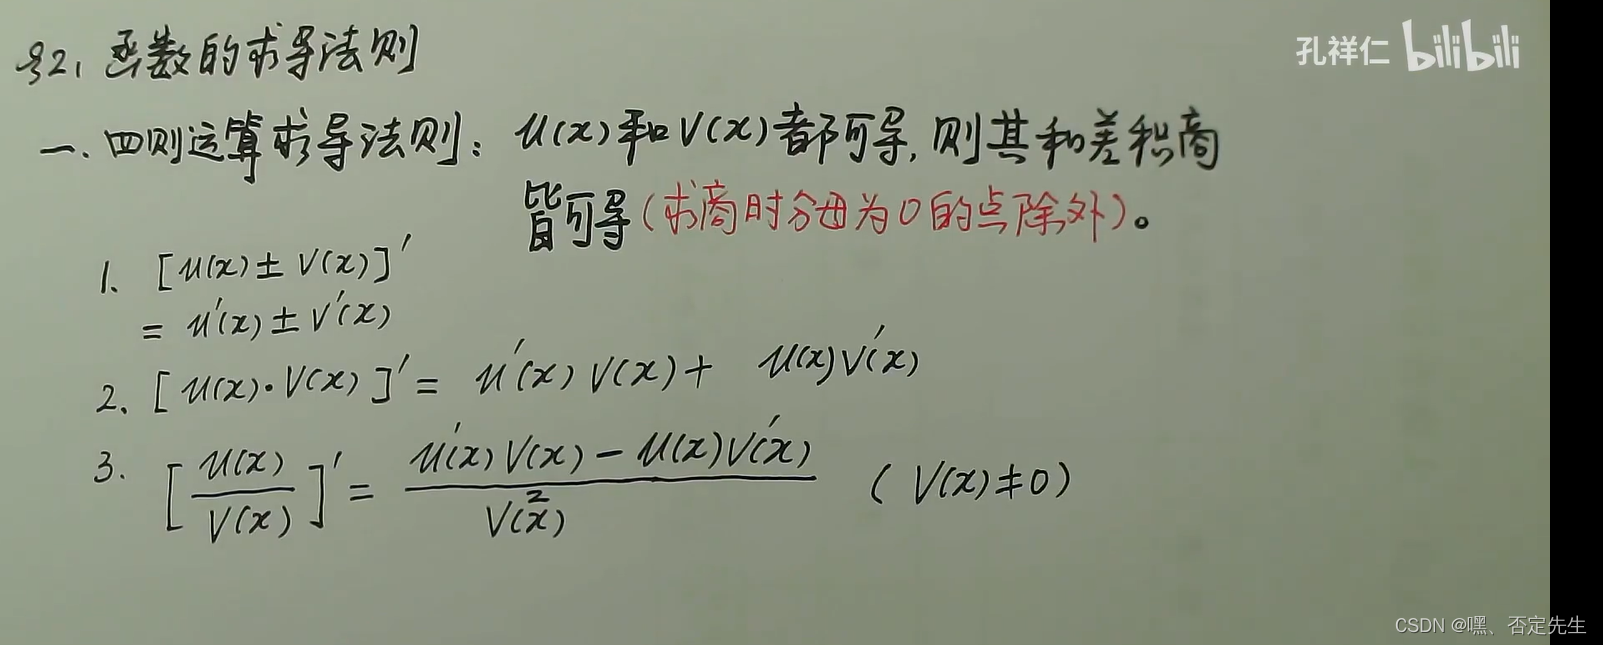 §2. 函数的求导法则
孔祥仁 bilibili
一. 四则运算求导法则: u(x)和v(x)都可导, 则其和差积商
皆可导(求商时分母为0的点除外)。
1. [u(x)±v(x)]'
= u'(x)±v'(x)
2. [u(x)·v(x)]' = u'(x)v(x)+ u(x)v'(x)
3. [u(x)/v(x)]' = (u'(x)v(x)-u(x)v'(x))/v²(x) (v(x)≠0)
CSDN @嘿、否定先生